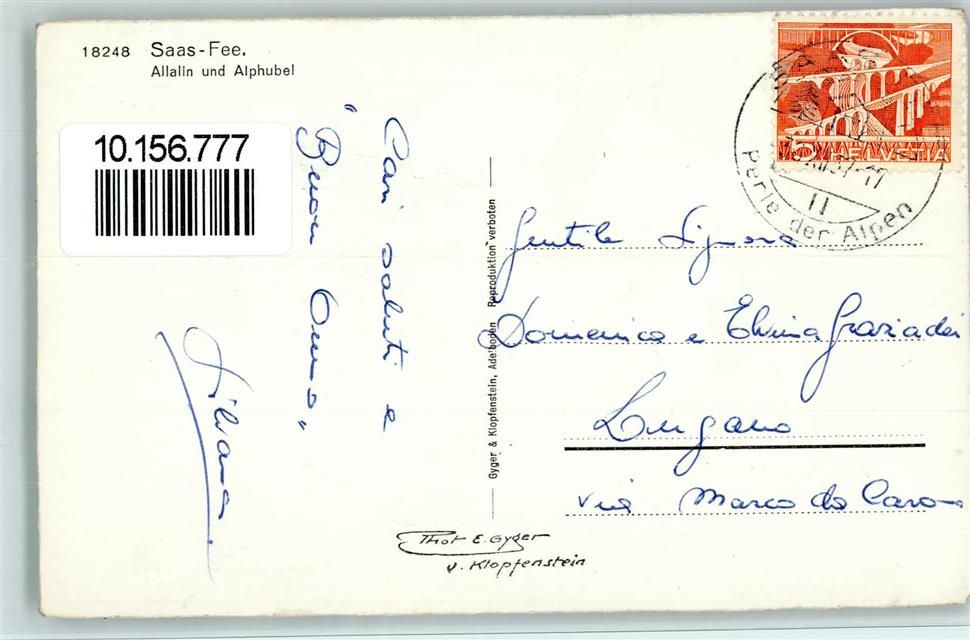 18248 Saas-Fee.
Allalin und Alphubel
10.156.777
Cari saluti e
"Buon Anno"
Silvana
Gyger & Klopfenstein, Adelboden Reproduktion verboten
Phot E. Gyger
u. Klopfenstein
5 HELVETIA
Perle der Alpen
Gentile Signora
Domenico e Elvina Graziadei
Lugano
Via Marco da Carona